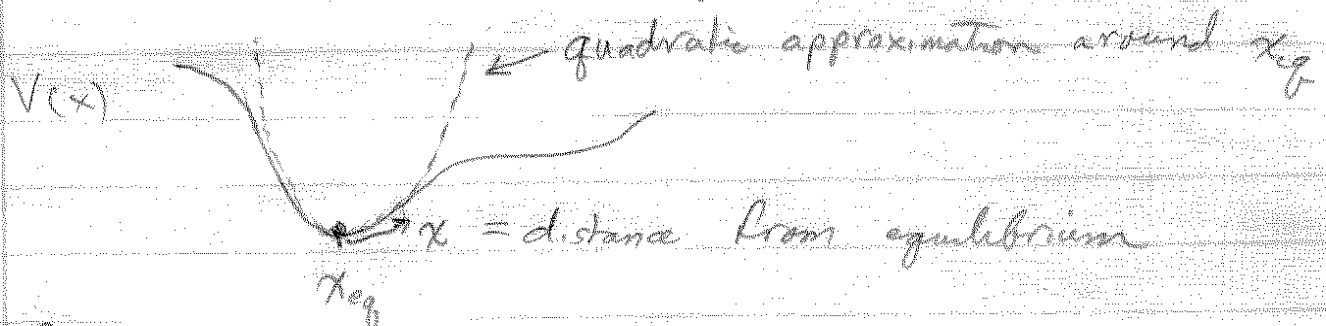 quadratic approximation around x_eq
V(x)
x = distance from equilibrium
x_eq